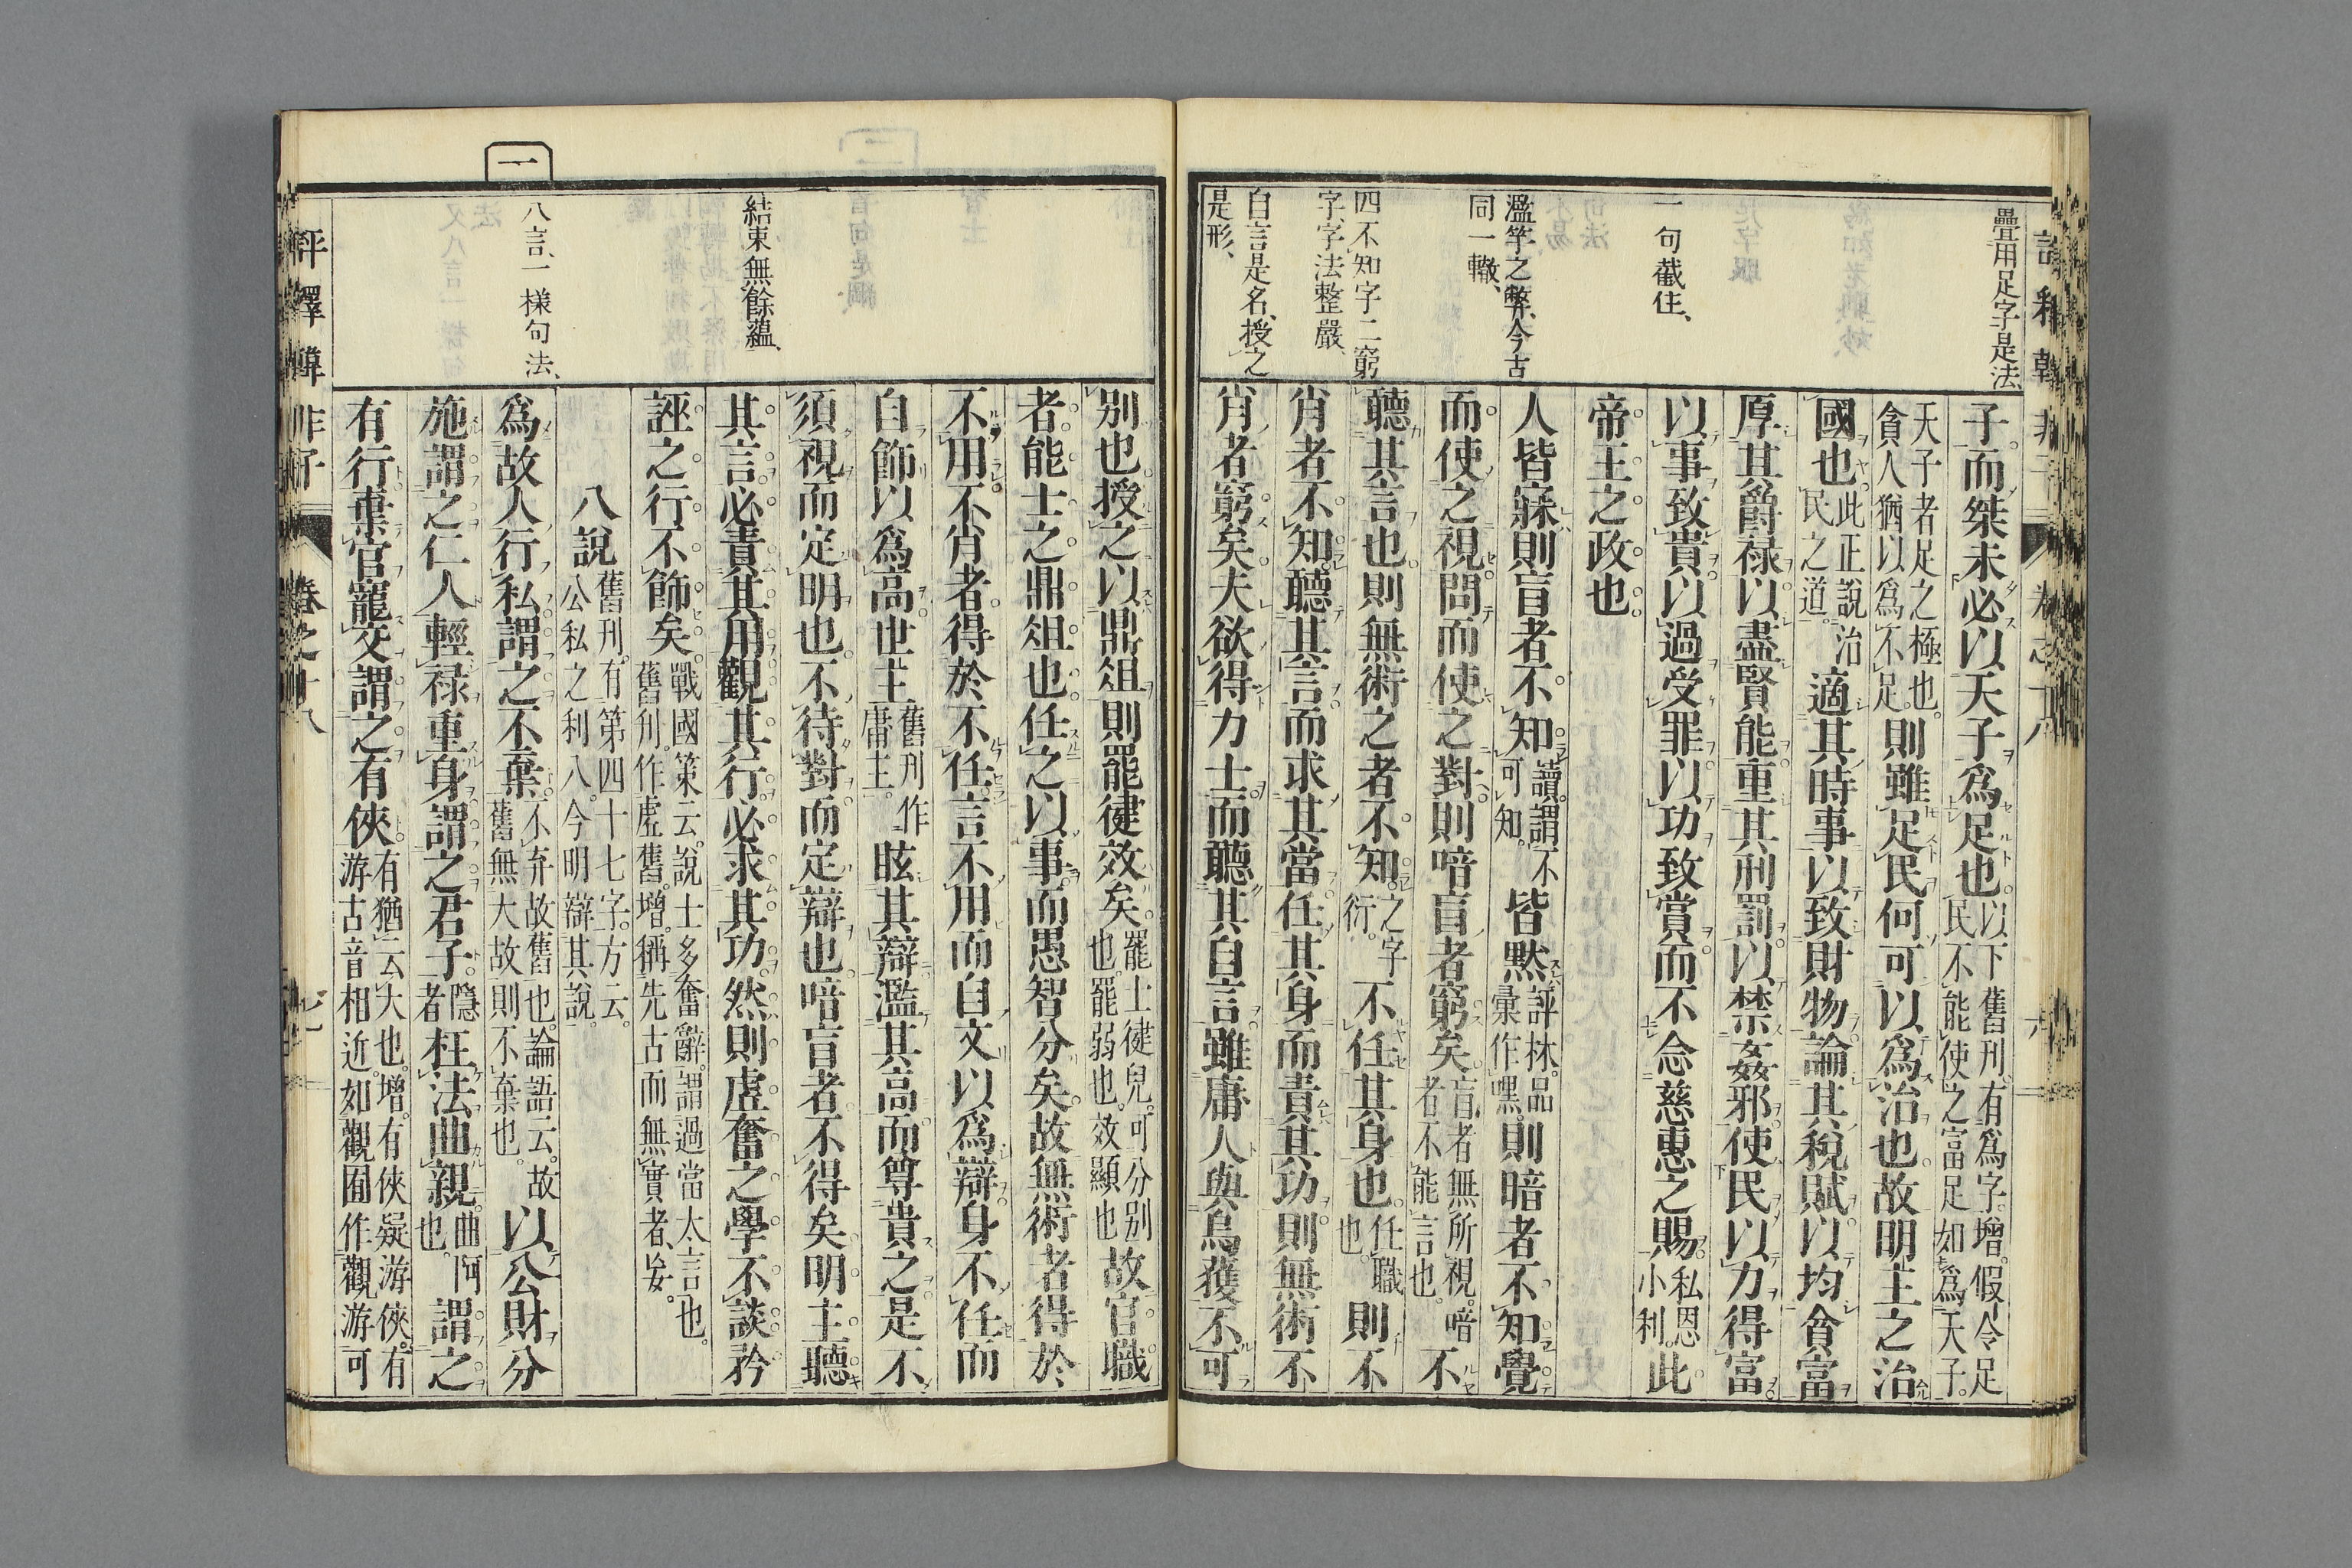 疊用足字是法、
一句截住、
濫竽之弊、今古
同一轍、
四不知字二窮
字、字法整嚴、
自言是名、授之
是形、
子而桀未必以天子爲足也以下舊刊有爲字増假令足
民不能使之富足如爲天子
天子者足之極也
貪人猶以爲不足則雖足民何可以爲治也故明主之治
國也此正說治
民之道適其時事以致財物論其稅賦以均貧富
厚其爵祿以盡賢能重其刑罰以禁姦邪使民以力得富
以事致貴以過受罪以功致賞而不念慈惠之賜私恩
小利此
帝王之政也
人皆寐則盲者不知讀謂不
可知皆默評林品
彙作嘿則喑者不知覺
而使之視問而使之對則喑盲者窮矣盲者無所視喑
者不能言也不
聽其言也則無術之者不知之字
衍不任其身也任職
也則不
肖者不知聽其言而求其當任其身而責其功則無術不
肖者窮矣夫欲得力士而聽其自言雖庸人與烏獲不可
結束無餘蘊、
八言、一樣句法、
一
別也授之以鼎俎則罷健效矣罷士健兒可分別
也罷弱也效顯也故官職
者能士之鼎俎也任之以事而愚智分矣故無術者得於
不用不肖者得於不任言不用而自文以爲辯身不任而
自飾以爲高世主舊刊作
庸主眩其辯濫其高而尊貴之是不
須視而定明也不待對而定辯也喑盲者不得矣明主聽
其言必責其用觀其行必求其功然則虛奮之學不談矜
誣之行不飾矣戰國策云說士多奮辭謂過當太言也
舊刋作虛舊増稱先古而無實者妄
八說舊刋有第四十七字方云
公私之利八今明辯其說
爲故人行私謂之不棄不弃故舊也論語云故
舊無大故則不棄也以公財分
施謂之仁人輕祿重身謂之君子隱
者枉法曲親曲阿
也謂之
有行棄官寵交謂之有俠有猶云大也増有俠疑游俠有
游古音相近如觀囿作觀游可
評釋韓非子 卷之十八